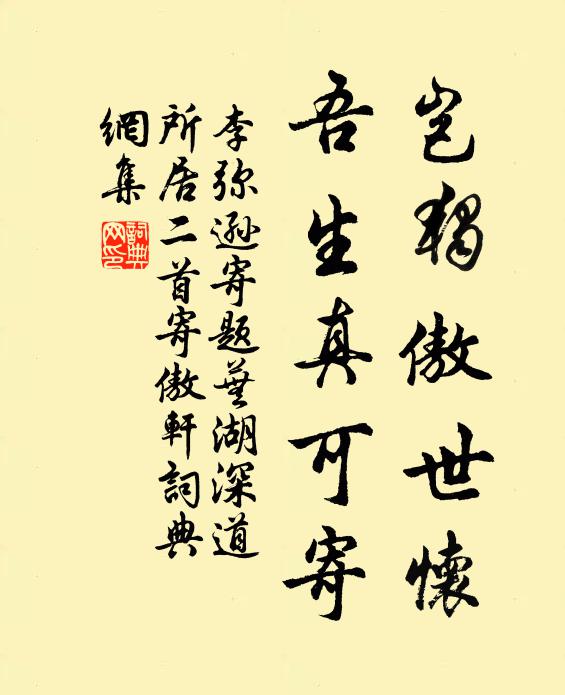 岂獨傲世懷
吾生真可寄
李弥遜寄题蕪湖深道
所居二首寄傲軒詞典
網集
詞典
网印